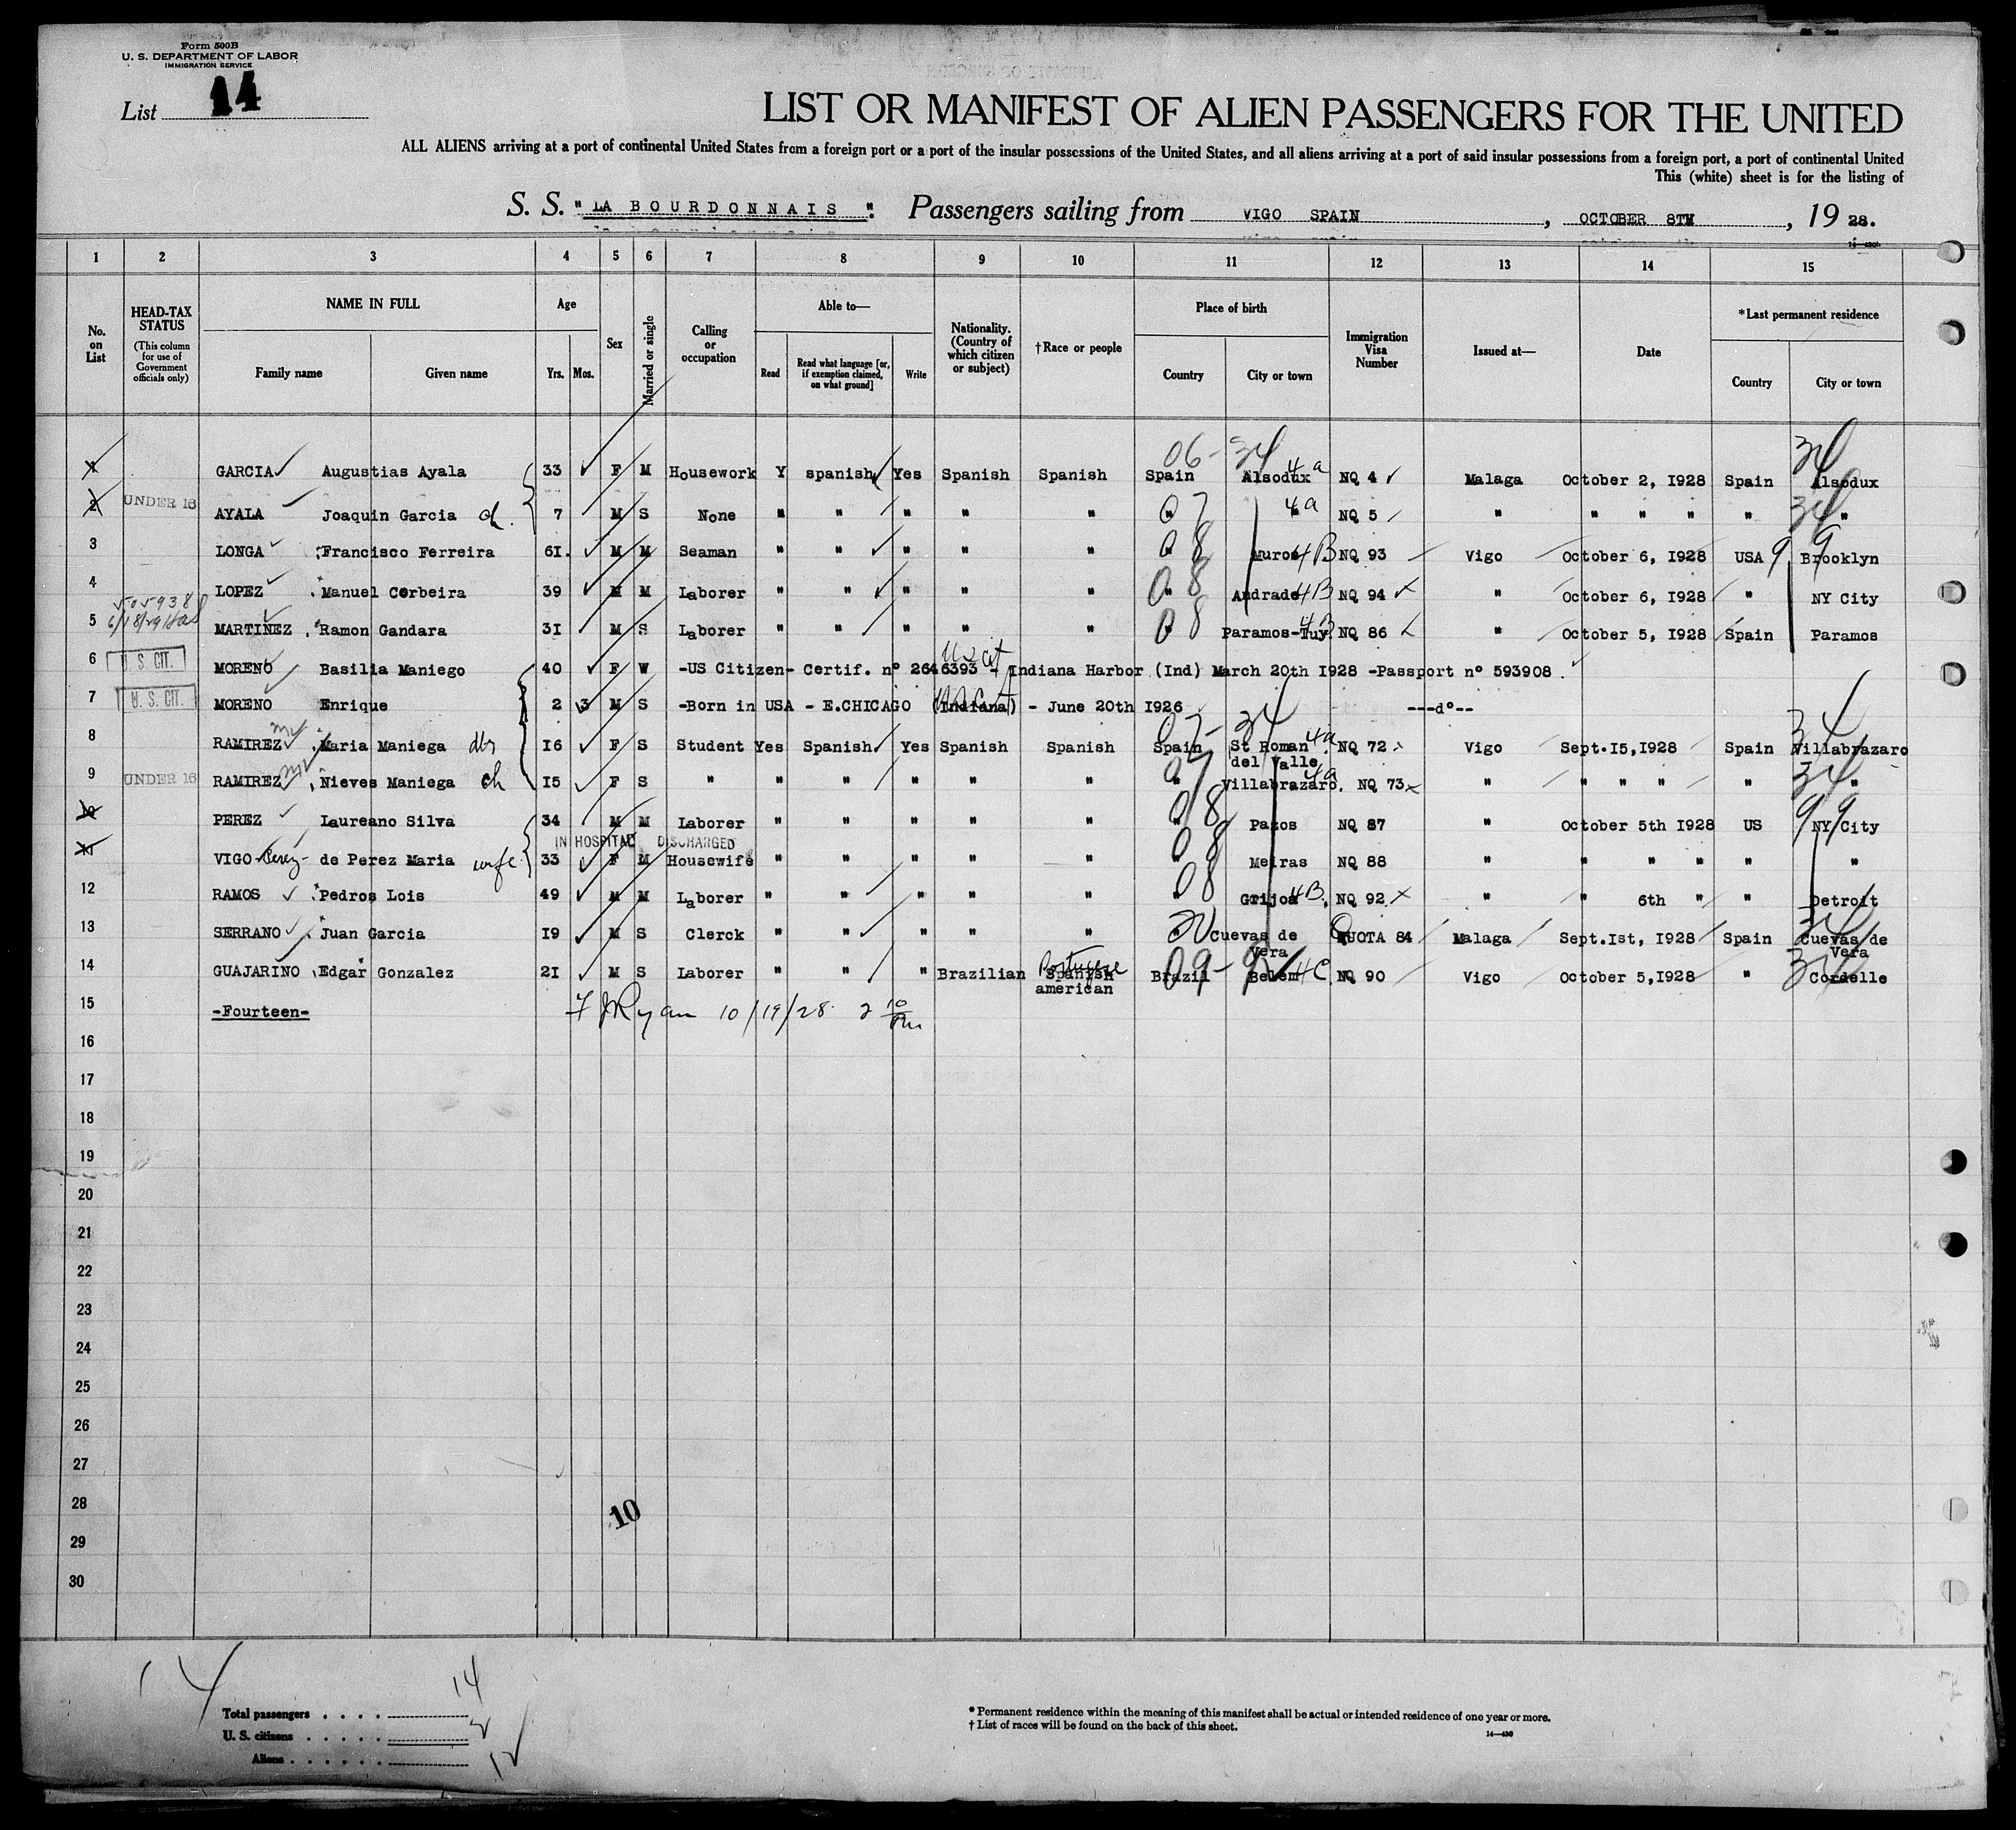 Form 500B
U. S. DEPARTMENT OF LABOR
IMMIGRATION SERVICE
List 14
LIST OR MANIFEST OF ALIEN PASSENGERS FOR THE UNITED
ALL ALIENS arriving at a port of continental United States from a foreign port or a port of the insular possessions of the United States, and all aliens arriving at a port of said insular possessions from a foreign port, a port of continental United
This (white) sheet is for the listing of
S. S. " LA BOURDONNAIS ". Passengers sailing from VIGO SPAIN , OCTOBER 8TH , 19 28.
1 2 3 4 5 6 7 8 9 10 11 12 13 14 15
No. on List
HEAD-TAX STATUS (This column for use of Government officials only)
NAME IN FULL Family name Given name
Age Yrs. Mos.
Sex
Married or single
Calling or occupation
Able to— Read Read what language [or, if exemption claimed, on what ground] Write
Nationality. (Country of which citizen or subject)
†Race or people
Place of birth Country City or town
Immigration Visa Number
Issued at—
Date
*Last permanent residence Country City or town
06-34 34
1 GARCIA Augustias Ayala 33 F M Housework Y spanish Yes Spanish Spanish Spain Alsodux 4a NQ 4 Malaga October 2, I928 Spain Alsodux
2 UNDER 16 AYALA Joaquin Garcia ch. 7 M S None " " " " " 07 " 4a NQ 5 " " " " " 34 "
3 LONGA Francisco Ferreira 6I. M M Seaman " " " " " 08 Muros 4B NQ 93 Vigo October 6, I928 USA 9 9 Brooklyn
4 LOPEZ Manuel Corbeira 39 M M Laborer " " " " " 08 Andrade 4B NQ 94 " October 6, I928 " NY City
505938
5 6/18/29 MARTINEZ Ramon Gandara 3I M S Laborer " " " " " 08 Paramos-Tuy 4B NQ 86 " October 5, I928 Spain Paramos
US Cit
6 U. S. CIT. MORENO Basilia Maniego 40 F W -US Citizen- Certif. n° 2646393 - Indiana Harbor (Ind) March 20th I928 -Passport n° 593908
7 U. S. CIT. MORENO Enrique 2 3 M S -Born in USA - E.CHICAGO (Indiana) - June 20th I926 ---d°--
07-34 34
8 RAMIREZ Maria Maniega dtr I6 F S Student Yes Spanish Yes Spanish Spanish Spain St Roman del Valle 4a NQ 72 Vigo Sept.I5,I928 Spain Villabrazaro
9 UNDER 16 RAMIREZ Nieves Maniega ch I5 F S " " " " " " 07 Villabrazaro. 4a NQ 73 " " " " " 34 "
10 PEREZ Laureano Silva 34 M M Laborer " " " " " 08 Pazos NQ 87 " October 5th I928 US 99 NY City
IN HOSPITAL DISCHARGED
11 VIGO Perez de Perez Maria wife 33 F M Housewife " " " " " 08 Meiras NQ 88 " " " " " "
12 RAMOS Pedros Lois 49 M M Laborer " " " " " 08 Grijoa 4B. NQ 92 " " 6th " " Detroit
13 SERRANO Juan Garcia I9 M S Clerck " " " " " Cuevas de Vera QUOTA 84 Malaga Sept.Ist, I928 Spain Cuevas de Vera
14 GUAJARINO Edgar Gonzalez 2I M S Laborer " " " Brazilian Portugese Spanish american Brazil 09-9 Belem 4C NQ 90 Vigo October 5,I928 " 34 Cordelle
15 -Fourteen- F J Ryan 10/19/28. 2 10 Pm
16
17
18
19
20
21
22
23
24
25
26
27
28
10
29
30
14
Total passengers . . . . 14
U. S. citizens . . . . . 2
Aliens . . . . . . 12
* Permanent residence within the meaning of this manifest shall be actual or intended residence of one year or more.
† List of races will be found on the back of this sheet.
14—430